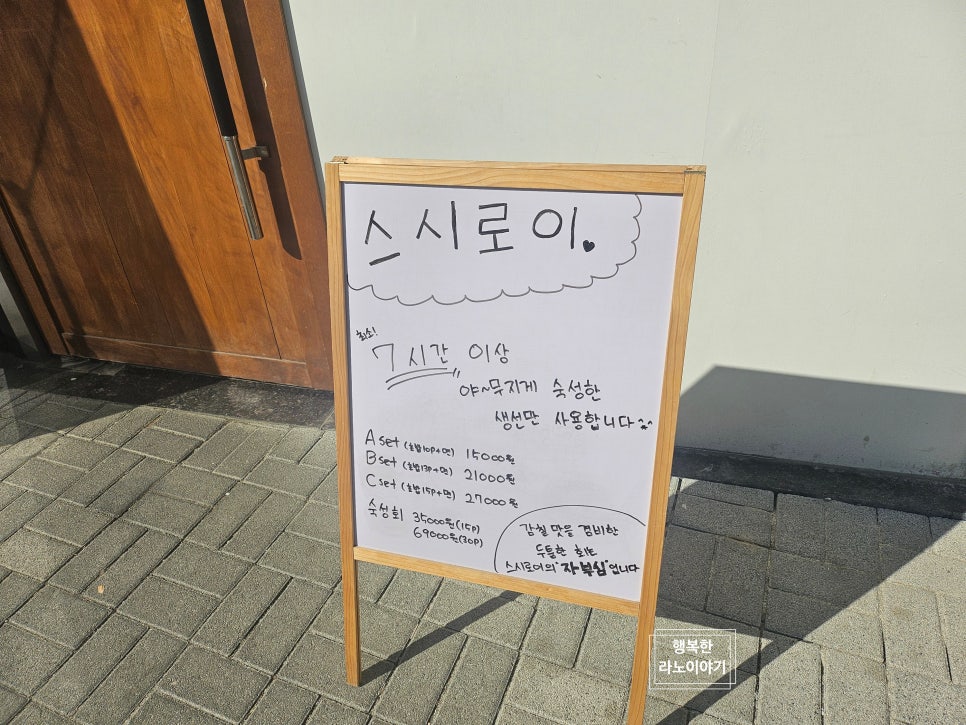 스시로이
최소!
7시간 이상
야~무지게 숙성한
생선만 사용합니다
A set (초밥10p+면) 15000원
B set (초밥13p+면) 21000원
C set (초밥15p+면) 27000원
숙성회 35000원(15p)
69000원(30p)
감칠맛을 겸비한
두툼한 회는
스시로이의 "자부심"입니다
행복한
라노이야기